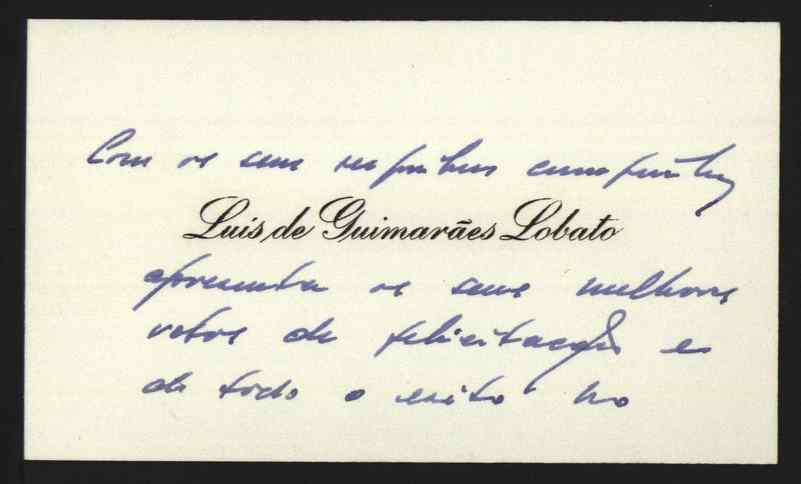 Com os seus respeitosos cumprimentos
Luis de Guimarães Lobato
apresenta os seus melhores
votos de felicitações e
de todo o exito no